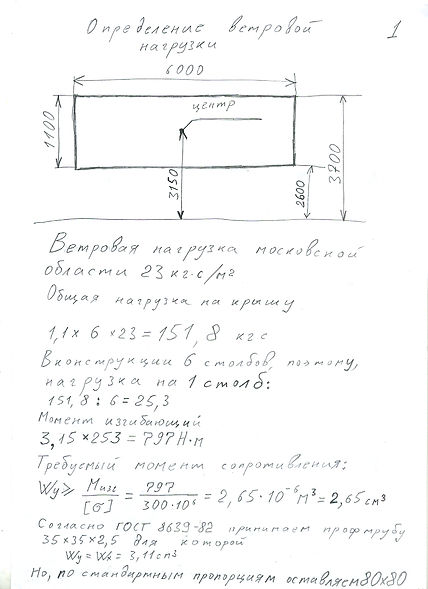 Определение ветровой
нагрузки
1
6000
центр
1100
3150
2600
3700
Ветровая нагрузка московской
области 23 кг·с/м²
Общая нагрузка на крышу
1,1 × 6 × 23 = 151,8 кгс
В конструкции 6 столбов, поэтому,
нагрузка на 1 столб:
151,8 : 6 = 25,3
Момент изгибающий
3,15 × 253 = 797 Н·м
Требуемый момент сопротивления:
Wy ≥ Mизг/[σ] = 797/300·10⁶ = 2,65·10⁻⁶ м³ = 2,65 см³
Согласно ГОСТ 8639-82 принимаем профтрубу
35×35×2,5 для которой
Wy = Wx = 3,11 см³
Но, по стандартным пропорциям оставляем 80×80